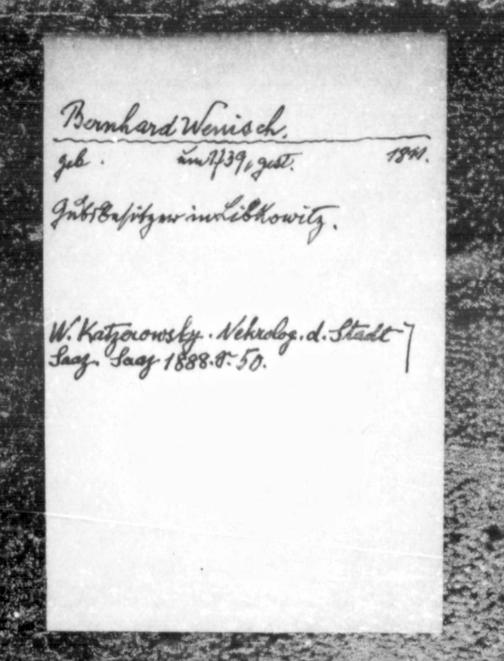 Bernhard Wenisch.
geb. um 1739, gest. 1811.
Gutsbesitzer in Libkowitz.
W. Katzerowsky. Nekrolog. d. Stadt
Saaz. Saaz 1888. S. 50.